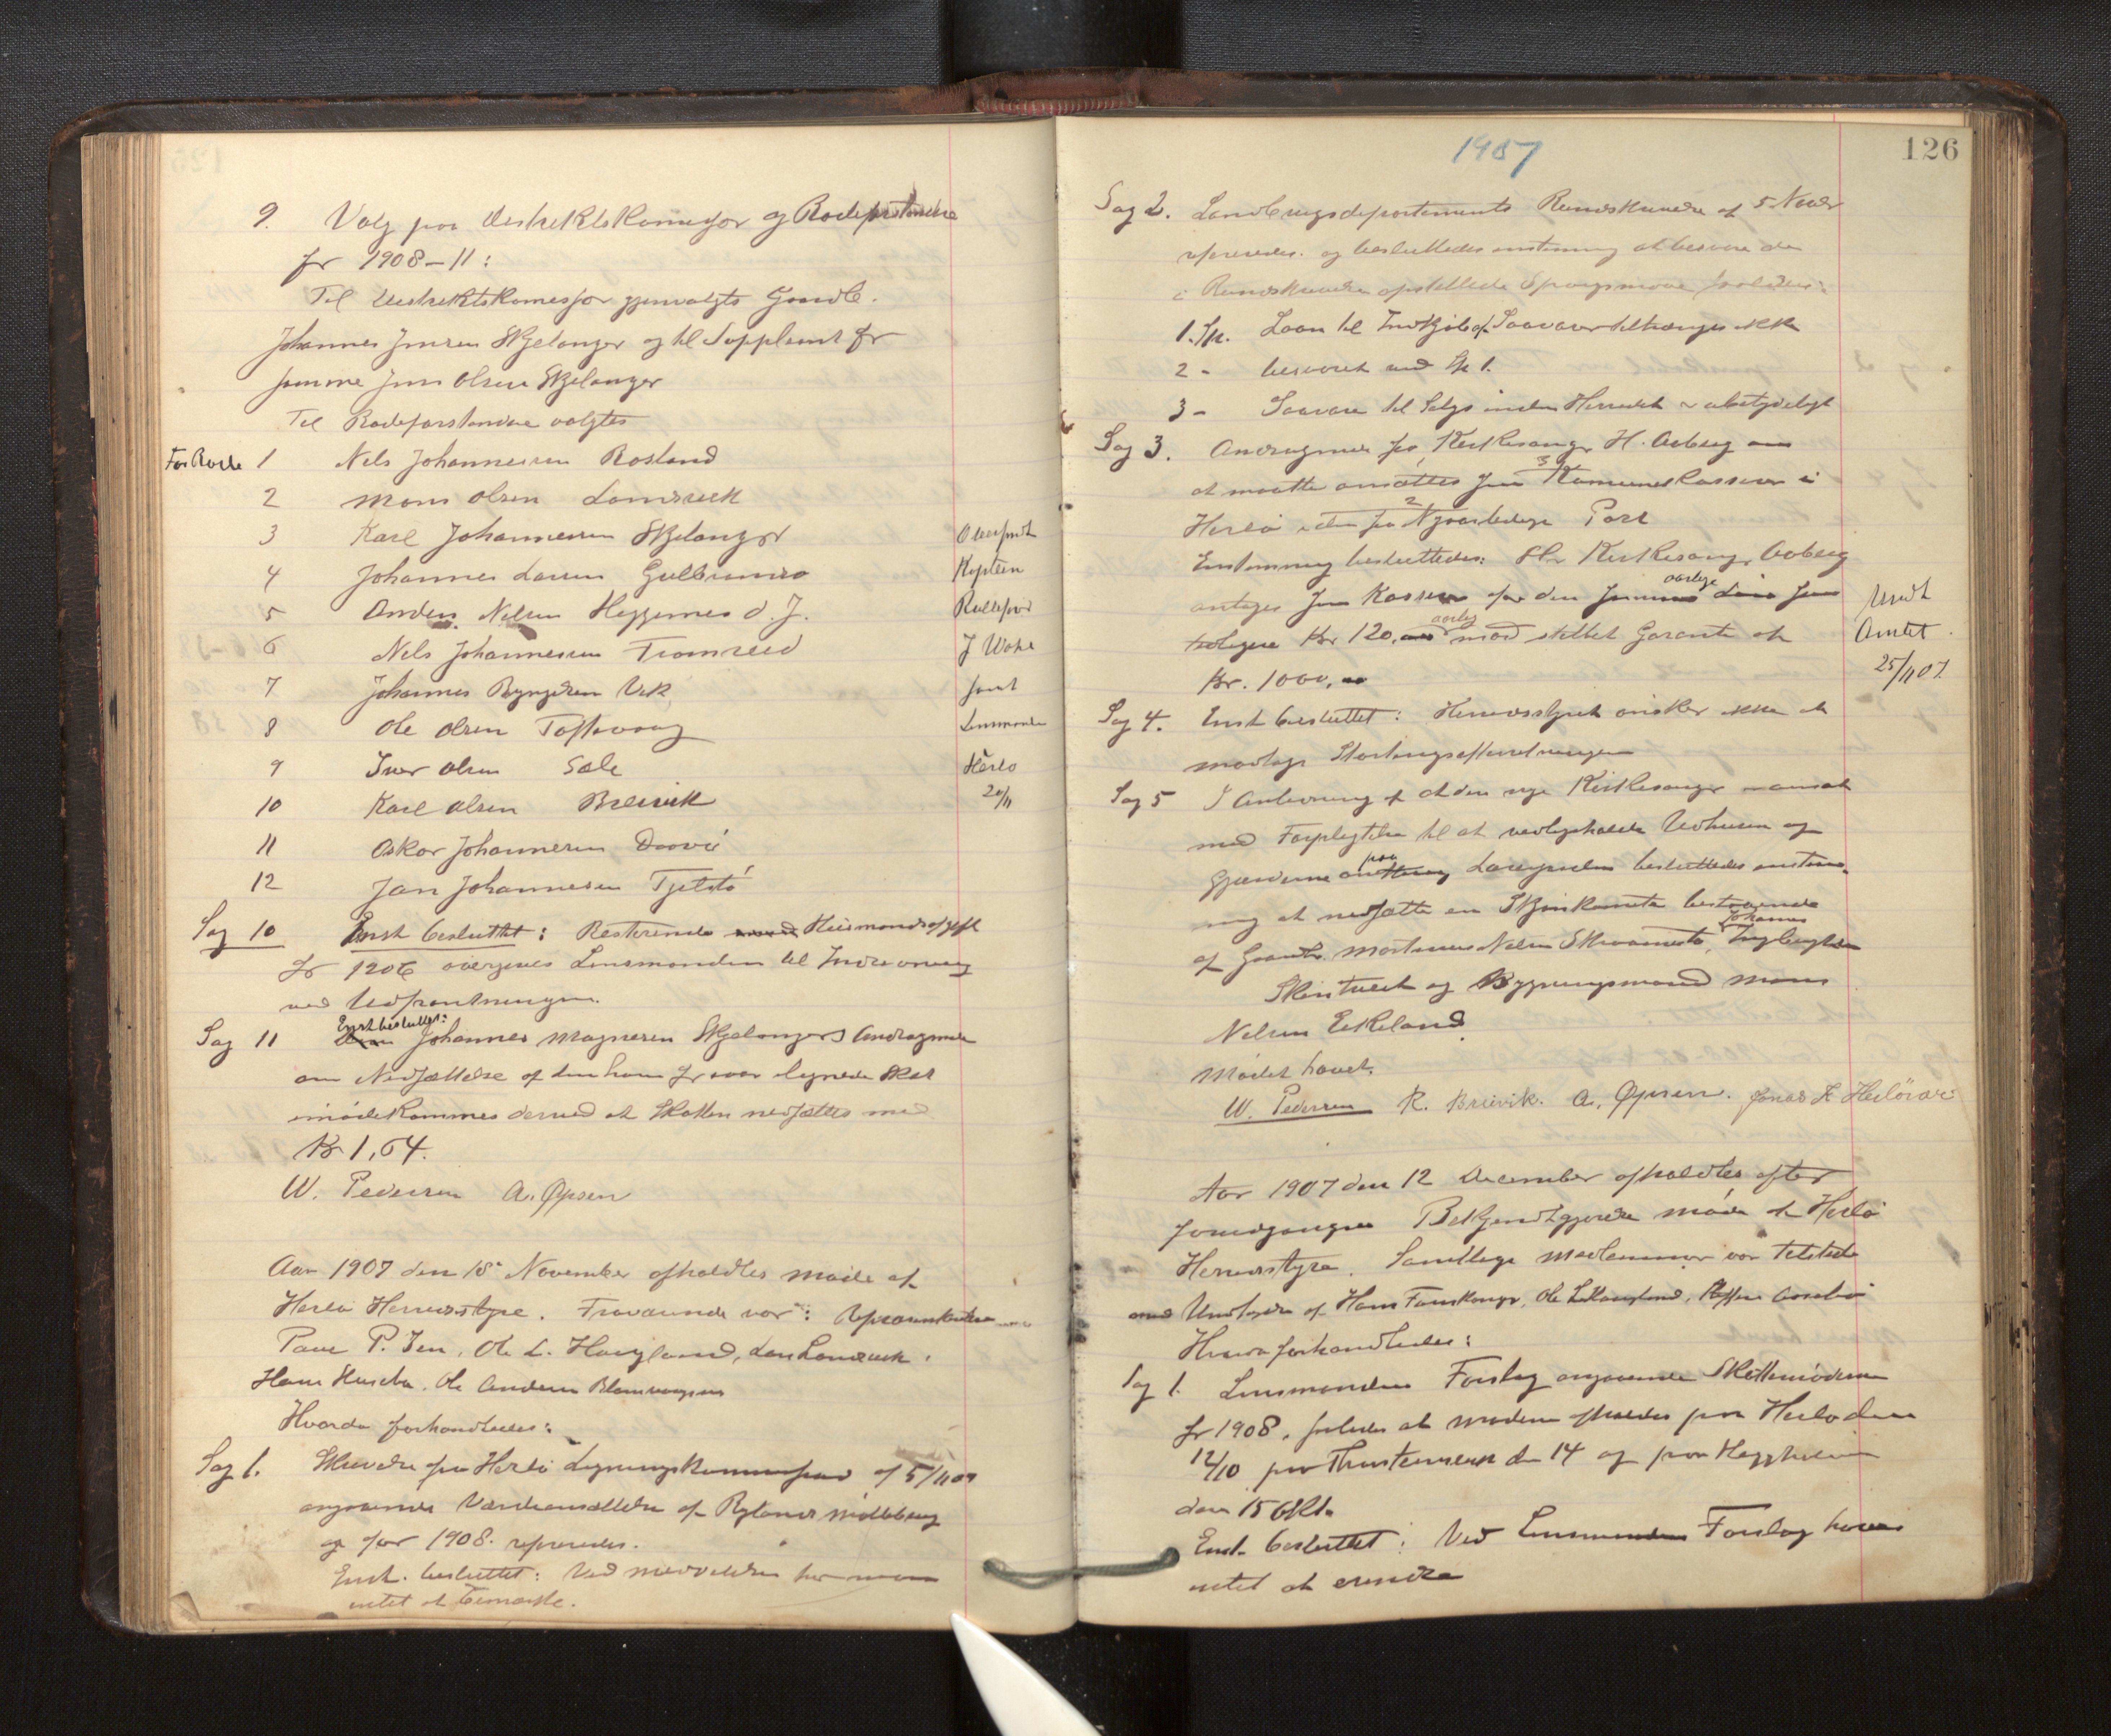 9. Valg paa Distriktskomisjær og Rodeforstandere
for 1908-11:
Til Distriktskomesjær gjenvalgts Gaardb.
Johannes Jensen Skjelanger og til Suppleant for
samme Jens Olsen Skjelanger
Til Rodeforstandere valgtes
For Rode 1 Nils Johannesen Rosland
2 Mons Olsen Landsvik
3 Karl Johannesen Skjelanger
4 Johannes Larsen Gulbrandsø
5 Anders Nilsen Heggernes d. J.
6 Nils Johannesen Tromsred
7 Johannes Vik
8 Ole Olsen Toftevaag
9 Iver Olsen Sæle
10 Karl Olsen Breivik
11 Oskar Johannesen
12 Jan Johannesen Tjeldstø
Kaptein
J Wahl
samt
Lensmanden
Herlø
20/11
Sag 10 Enst besluttet: Resterende Heismandsafgift
for 1906 overgives Lensmanden til Inddrivning
ved Udpantningen.
Sag 11 Enst besluttet: Johannes Magnesen Skjelangers Andragende
om Nedsættelse af den ham for iaar lignede Skat
imødekommes derved at Skatten nedsættes med
Kr 1,64.
W. Pedersen A. Øpsen
Aar 1907 den 18 November afholdtes møde af
Herlø Herredsstyre. Fraværende var: Repræsentanterne
Paul P. Ien, Ole L. Haugland, Lars Landsvik,
Hans Husebø, Ole Andersen Blomvaagnes
Hvorda forhandledes:
Sag 1. Skrivelse fra Herlø Ligningskommission af 5/11 07
angaaende Værdiansættelse af Rylands Møllebrug
for 1908. refereredes.
Enst. besluttet: Ved har man
intet at bemærke.
1907
126
Sag 2. Landbrugsdepartements Rundskrivelse af 5 Novbr
refereredes og besluttedes enstemmig at besvare de
i Rundskrivelse opstillede Spørgsmaal saaledes:
1. Sp. Laan til Indkjøb af Saavarer tiltrænges ikke
2 - besvaret med Sp 1.
3 - Saavare til Salgs inden Herredet er ubetydeligt
Sag 3. Andragende fra Kirkesanger H. Aaberg om
at maatte ansættes som 3 Kommunekasserer i
Herlø uden fra 2 Nytaar ledige Post
Enstemmig besluttedes: Hr Kirkesanger Aaberg
antages som Kasserer for den aarlige Løn som
tidligere Kr 120, aarlig mod stillet Garanti af
Kr. 1000,
Uds
Amtet
25/11 07
Sag 4. Enst besluttet: Herredsstyret ønsker ikke at
modtage Stortingsefterretningen
Sag 5 I Anledning af at den nye Kirkesanger er ansat
med Forpligtelse til at vedligeholde Udhusene og
Gjærderne paa Lærerjorden besluttedes enstem-
mig at nedsætte en Skjønskomite bestaaende
af Gaardb. Mortinus Nilsen Johannes
Skintveit og Bygningsmand Mons
Nilsen Eikeland.
Mødet hævet.
W. Pedersen K. Breivik. A. Øpsen. Jonas L Herløvær
Aar 1907 den 12 December afholdtes efter
foregangne Bekjendtgjørelse møde af Herlø
Herredsstyre. Samtlige medlemmer var tilstede
med Undtagelse af Hans Ole L. Haugland,
Hvorda forhandledes:
Sag 1. Lensmandens Forslag angaaende Skattemøderne
for 1908, saaledes at møderne afholdes paa Herlø den
12/10 paa den 14 og paa Hegghelm
den 15 Okt.
Enst. besluttet: Ved Lensmandens Forslag haves
intet at erindre